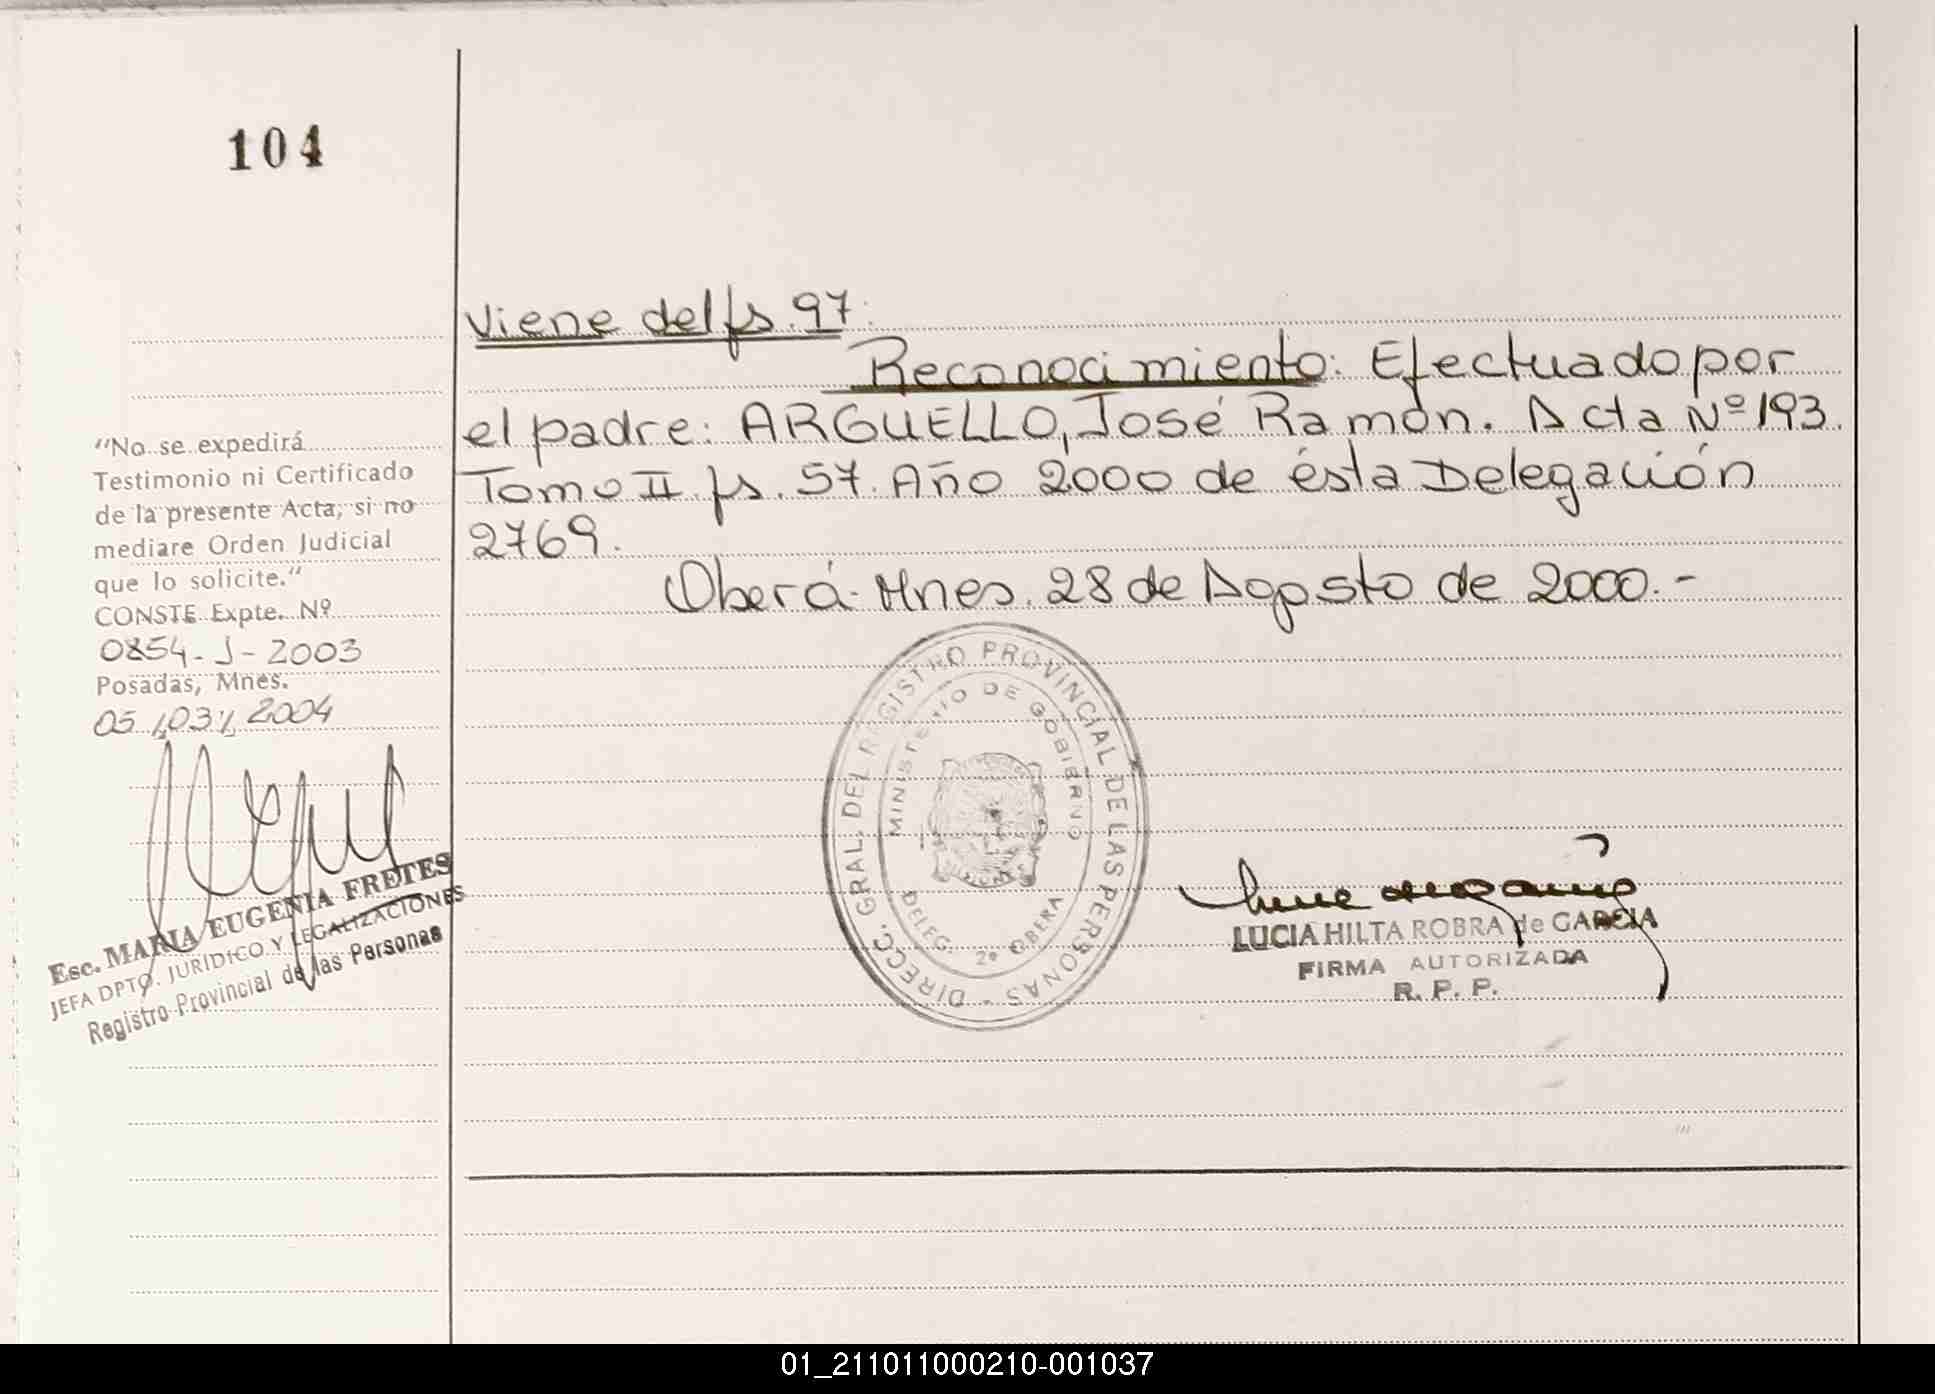 104
Viene del fs. 97.
Reconocimiento: Efectuado por
el padre: ARGUELLO, José Ramón. Acta Nº 193.
Tomo II. fs. 57. Año 2000 de ésta Delegación
2769.
Oberá. Mnes. 28 de Agosto de 2000.-
"No se expedirá
Testimonio ni Certificado
de la presente Acta, si no
mediare Orden Judicial
que lo solicite."
CONSTE Expte. Nº
0854-J-2003
Posadas, Mnes.
05/03/2004
Esc. MARIA EUGENIA FRETES
JEFA DPTO. JURIDICO Y LEGALIZACIONES
Registro Provincial de las Personas
DIRECC. GRAL. DEL REGISTRO PROVINCIAL DE LAS PERSONAS -
MINISTERIO DE GOBIERNO
DELEG. 2º OBERA
LUCIA HILTA ROBRA de GARCIA
FIRMA AUTORIZADA
R. P. P.
01_211011000210-001037